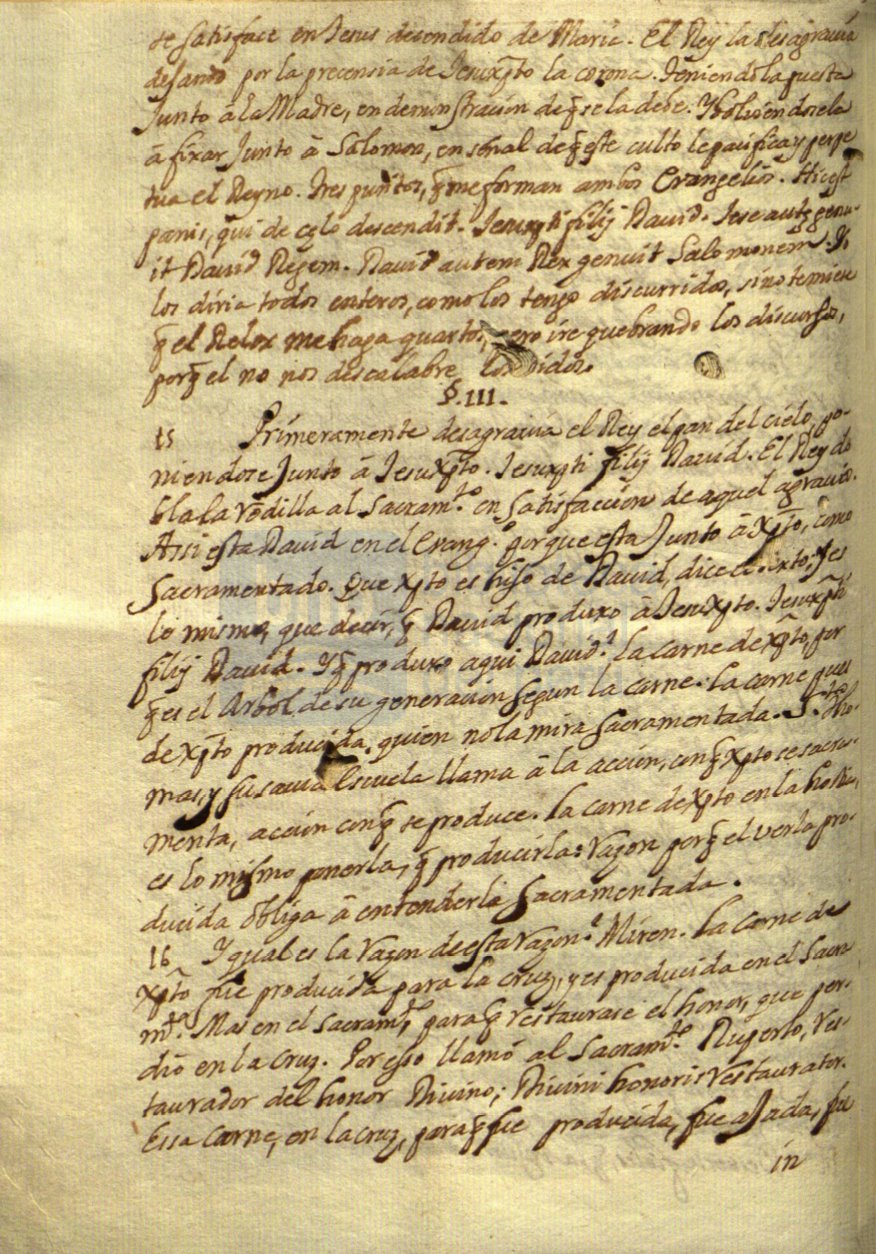 se satisface en Jesus decendido de Maria. El Rey la desagravia
dejando por la precensia de Jesuxp̃to la corona. Teniendola puesta
Junto â la Madre, en demonstracion de q̃ se la debe. Y bolviendosela
â fixar Junto â Salomon, en señal de q̃ este culto le pacifica y perpe
tua el Reyno. Tres puntos, q̃ me forman ambos Evangelios. Hic est
panis, qui de cęlo descendit. Jesuxp̃ti filij David. Jese autẽ genu-
it David Regem. David autem Rex genuit Salomonem. Yo
los diria todos enteros, como los tengo discurridos, sino temiera
q̃ el Relox me haga quartos, pero ire quebrando los discursos,
porq̃ el no nos descalabre los oidos.
§. III.
15 Primeramente desagravia el Rey el pan del cielo, po-
niendose Junto â Jesuxp̃to. Jesuxp̃ti filij David. El Rey do
bla la rodilla al Sacram.to en satisfaccion de aquel agravio.
Assi esta David en el Evang.o porque esta Junto â xp̃to, como
Sacramentado. Que xp̃to es hijo de David, dice el texto; y es
lo mismo, que decir, q̃ David produxo â Jesuxp̃to. Jesuxp̃ti
filij David. Y q̃ produxo aqui David? La carne de xp̃to, por
q̃ es el Arbol de su generacion segun la carne. La carne pues
de xp̃to producida, quien no la mira Sacramentada. S.to Tho-
mas, y su savia Escuela llama â la accion, con q̃ xp̃to se sacra-
menta, accion con q̃ se produce. La carne de xp̃to en la hostia,
es lo mismo ponerla, q̃ producirla: razon porq̃ el verla pro-
ducida obliga â entenderla Sacramentada.
16 Y qual es la razon de esta razon? Miren. La carne de
xp̃to fue producida para la cruz, y es producida en el Sacra
m.to Mas en el Sacram.to para q̃ restaurase el honor, que per-
dio en la cruz. Por esso llamô al Sacram.to Ruperto, res-
taurador del honor Divino; Divini honoris restaurator.
Essa carne, en la cruz, para q̃ fue producida, fue ajada, fue
in